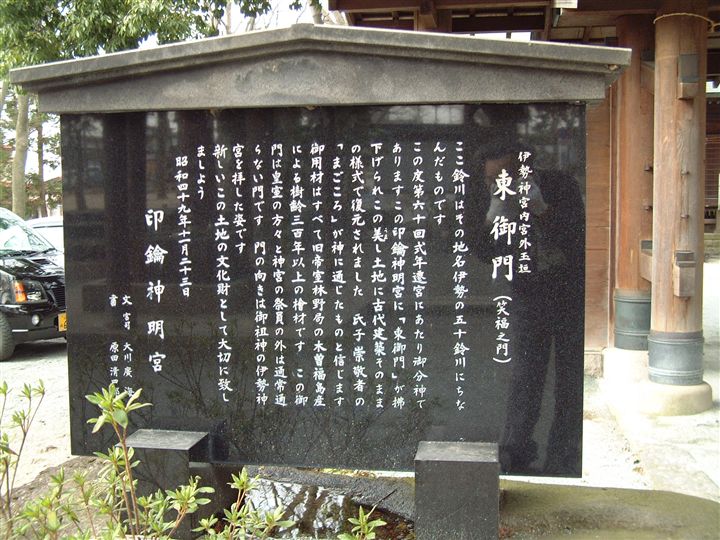 伊勢神宮内宮外玉垣
東御門(笑福之門)
ここ鈴川はその地名伊勢の五十鈴川にちな
んだものです
この度第六十回式年遷宮にあたり御分神で
ありますこの印鑰神明宮に「東御門」が拂
下げられこの美し土地に古代建築そのまま
の様式で復元されました 氏子崇敬者の
「まごころ」が神に通じたものと信じます
御用材はすべて旧帝室林野局の木曽福島産
による樹齢三百年以上の檜材です この御
門は皇室の方々と神宮の祭員の外は通常通
らない門です 門の向きは御祖神の伊勢神
宮を拝した姿です
新しいこの土地の文化財として大切に致し
ましょう
昭和四十九年十一月二十三日
印鑰神明宮
文 宮司 大川廣海
書 原田清